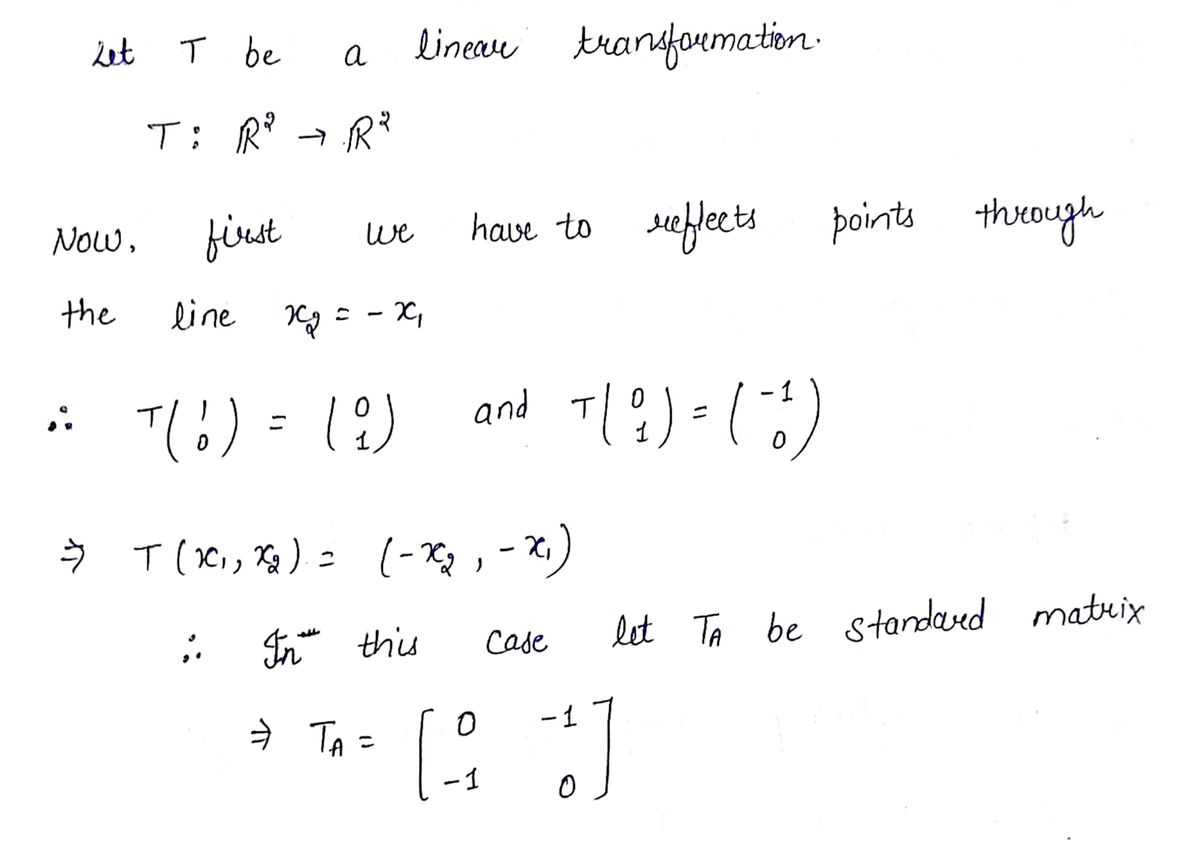 Let T be a linear transformation.
T : ℝ² → ℝ²
Now, first we have to reflects points through
the line x₂ = - x₁
∴ T(1 0) = (0 1) and T(0 1) = (-1 0)
⇒ T(x₁, x₂) = (-x₂, -x₁)
∴ In this case let T_A be standard matrix
⇒ T_A = [0 -1
-1 0]